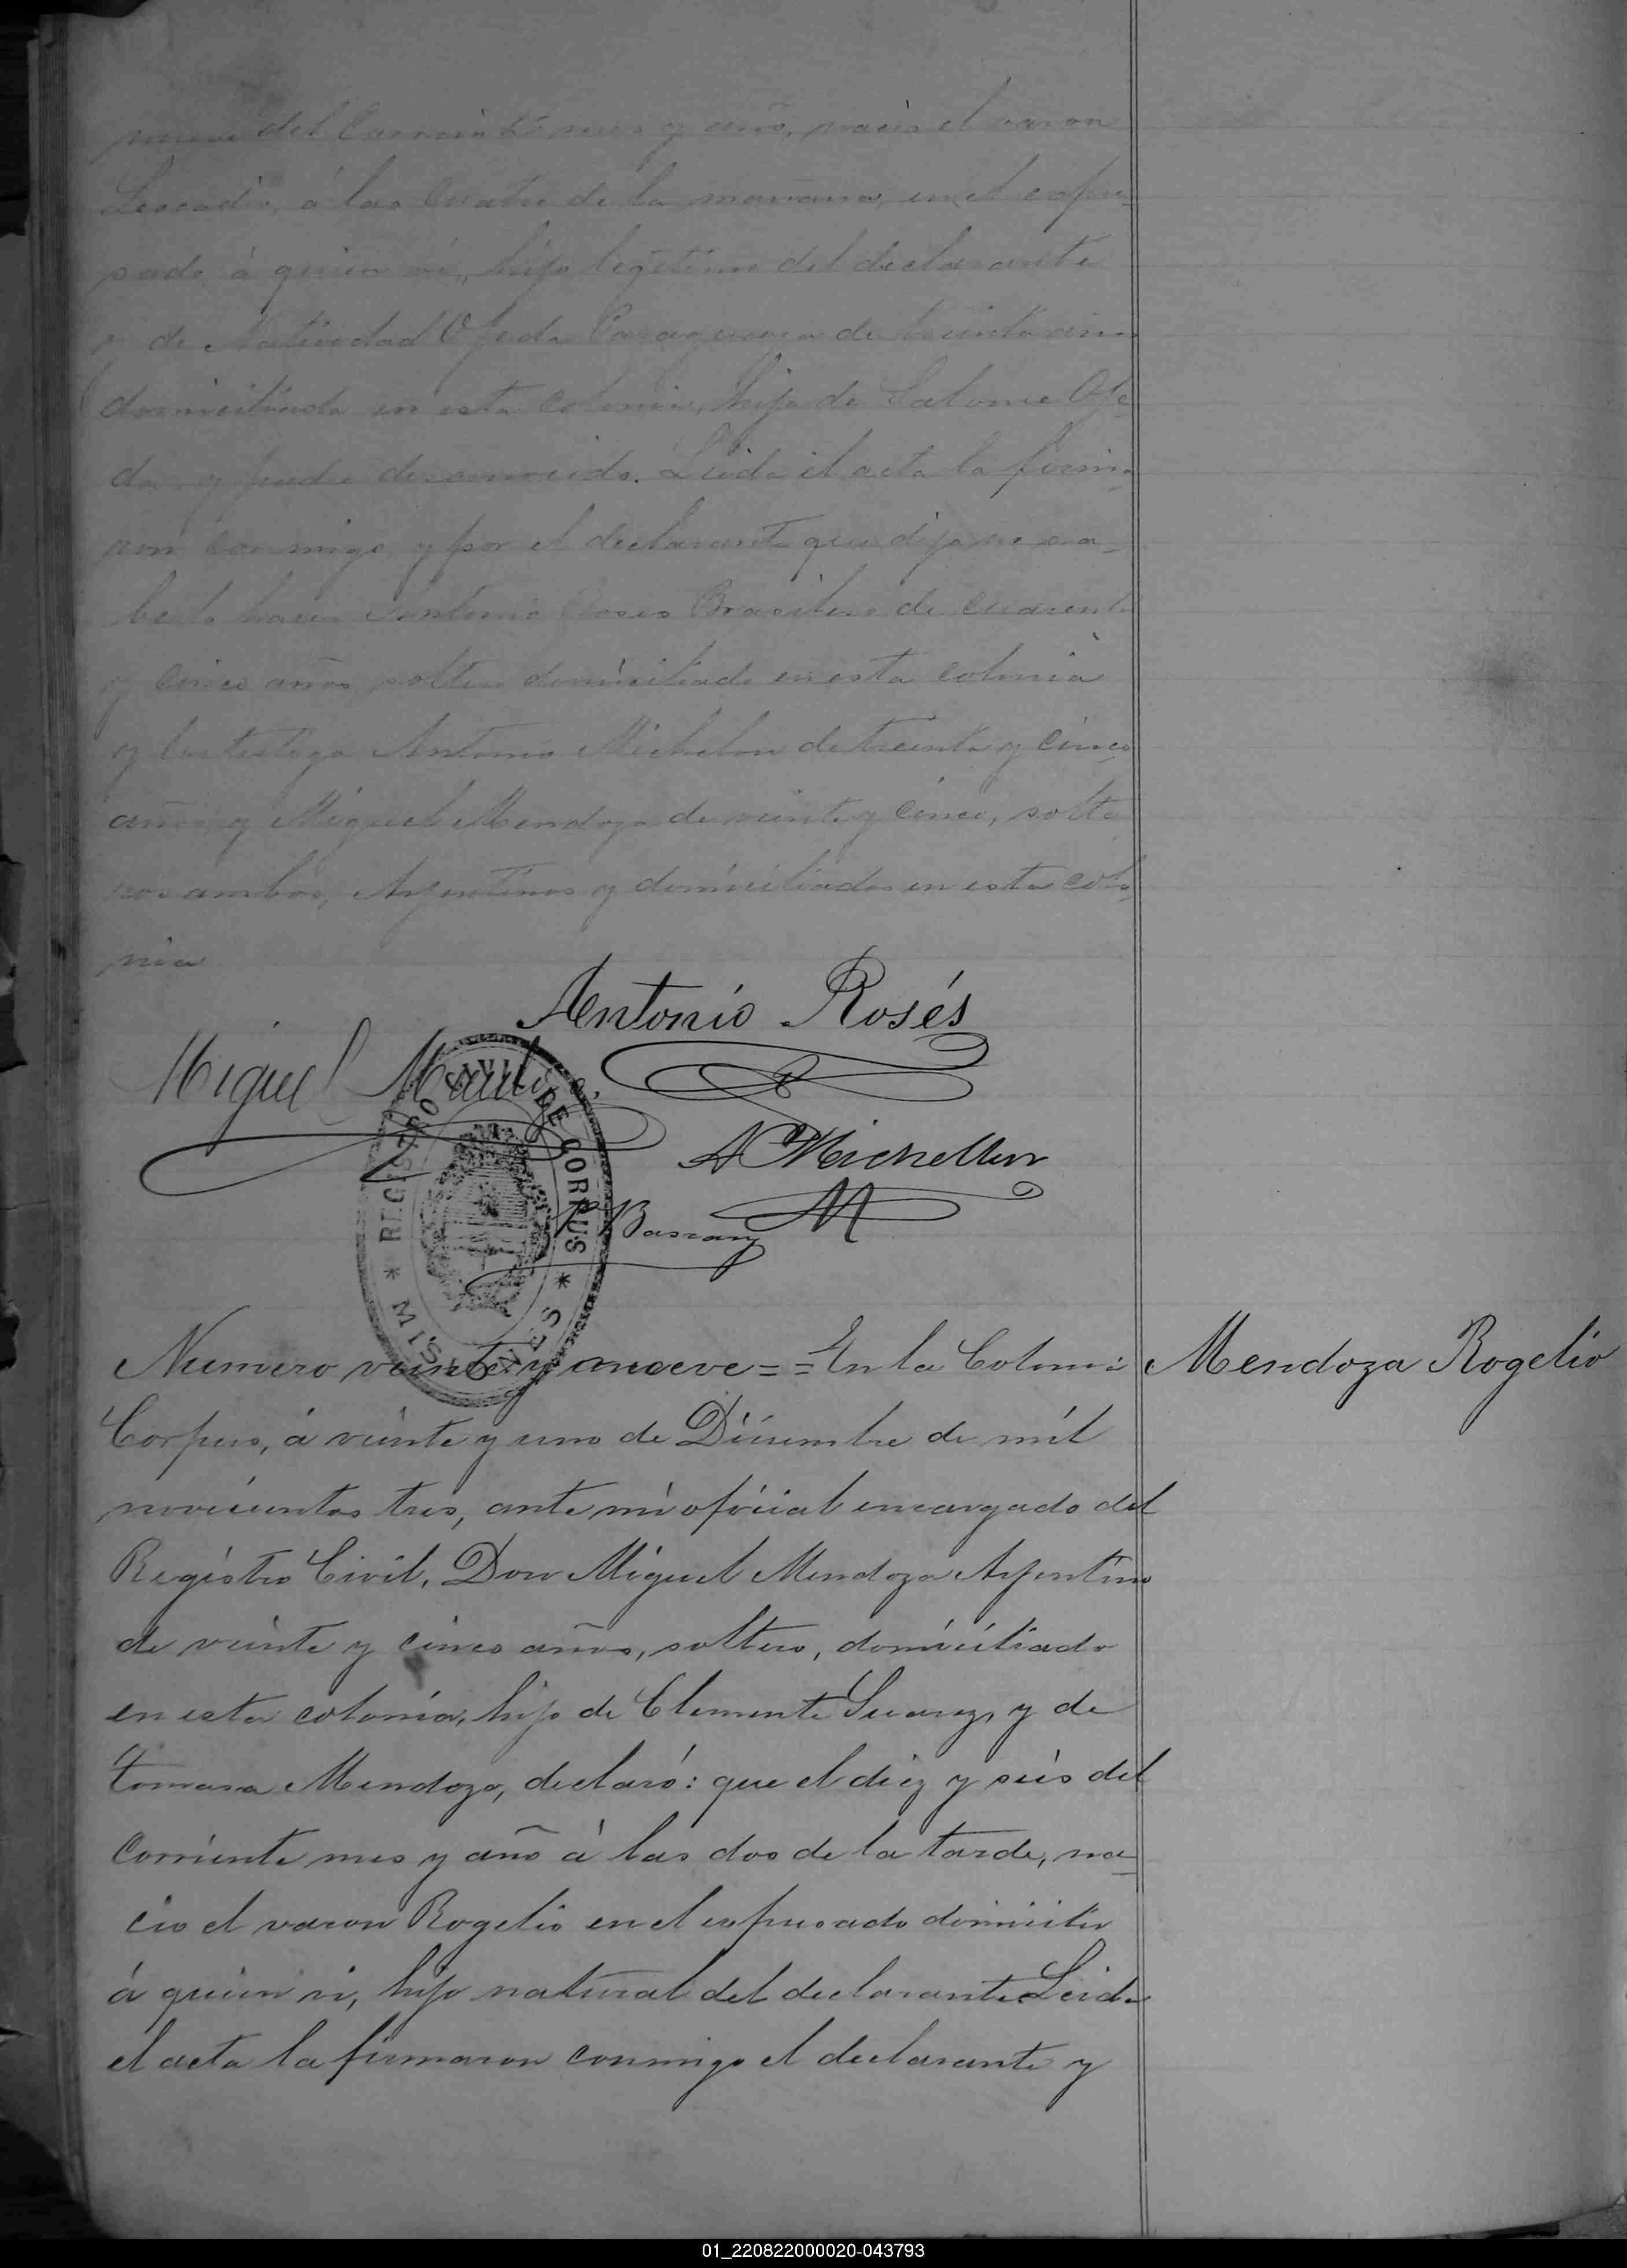 nueve del Corriente mes y año, nacio el varon
Leocadio, á las Cuatro de la mañana, en el expre-
sado á quien vi, hijo legítimo del declarante
y de Natividad Ojeda Paraguaya de treinta años
domiciliada en esta colonia, hija de Salome Oje-
da y padre desconocido. Leida el acta la firma-
ron conmigo y por el declarante que dijo no sa-
berlo hacer Antonio Roses Brasilero de cuarenta
y Cinco años soltero domiciliado en esta colonia
y los testigos Antonio Michelon de treinta y Cinco
años y Miguel Mendoza de veinte y Cinco, solte-
ros ambos, Argentinos y domiciliados en esta colo-
nia
Antonio Rosés
Miguel Mendoza.
A Michellon
REGISTRO CIVIL DE CORPUS
* MISIONES *
Numero veinte y nueve = = En la Colonia
Mendoza Rogelio
Corpus, á veinte y uno de Diciembre de mil
novecientos tres, ante mi oficial encargado del
Registro Civil, Don Miguel Mendoza Argentino
de veinte y cinco años, soltero, domiciliado
en esta colonia, hijo de Clemente Suarez, y de
Tomasa Mendoza, declaró: que el diez y seis del
corriente mes y año à las dos de la tarde, na-
cio el varon Rogelio en el expresado domicilio
á quien vi, hijo natural del declarante Leida
el acta la firmaron conmigo el declarante y
01_220822000020-043793